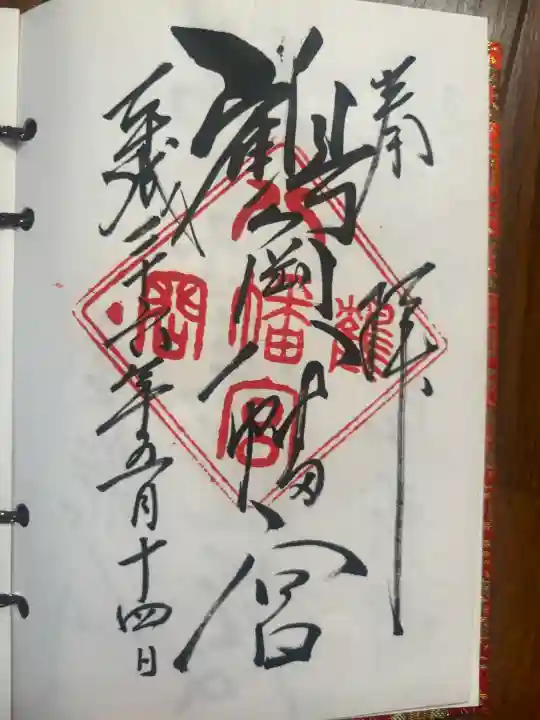 奉拝
鶴岡八幡宮
平成二十六年五月十四日
鶴
八幡宮
岡